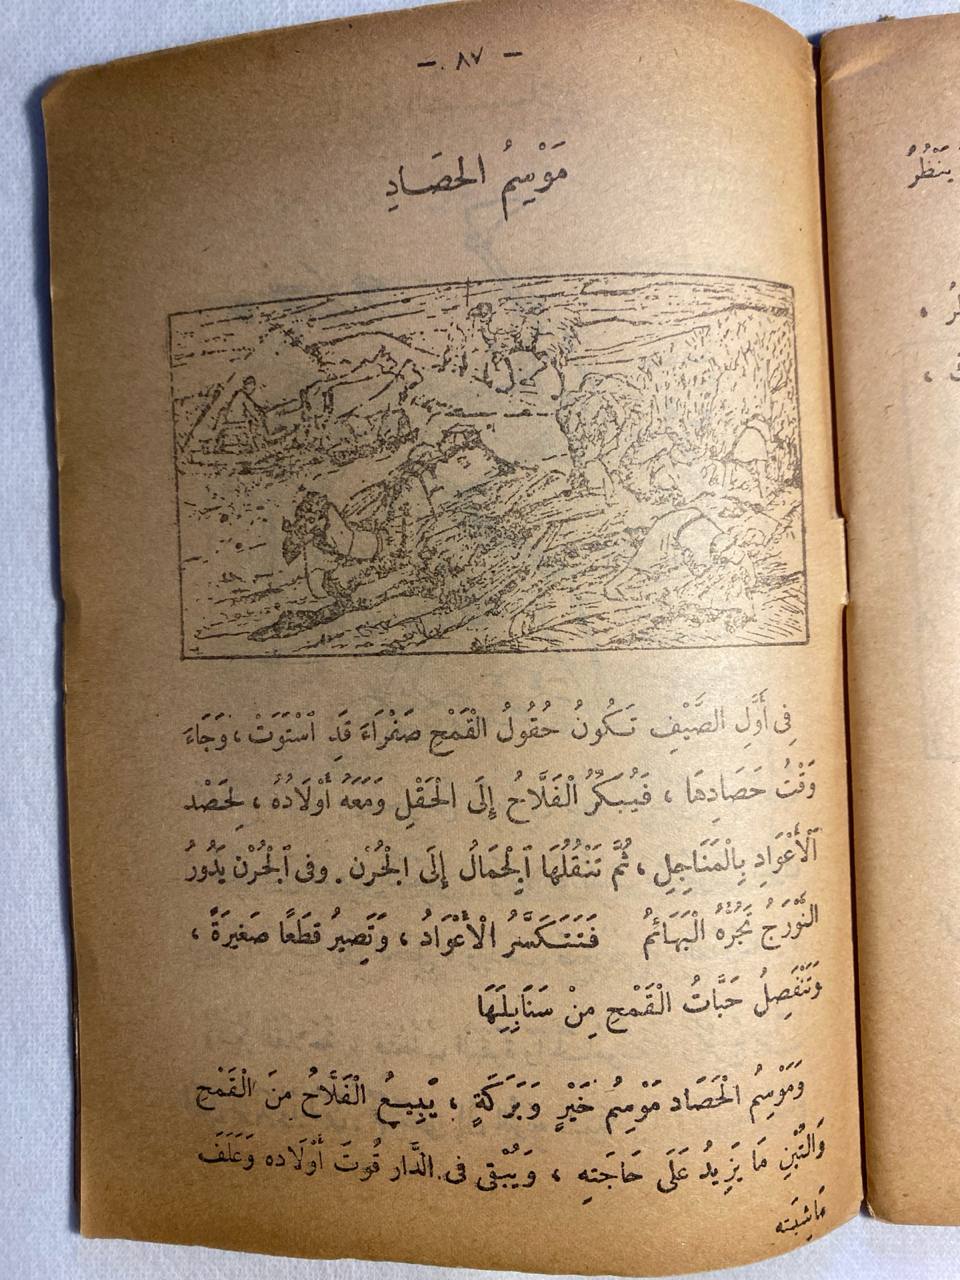 - ٨٧ -
مَوْسِمُ الحَصَادِ
فِى أَوَّلِ الصَّيْفِ تَكُونُ حُقُولُ الْقَمْحِ صَفْرَاءَ قَدِ ٱسْتَوَتْ ، وَجَاءَ
وَقْتُ حَصَادِهَا ، فَيُبَكِّرُ الْفَلَّاحُ إِلَى الْحَقْلِ وَمَعَهُ أَوْلَادُهُ ، لِحَصْد
ٱلْأَعْوَادِ بِالْمَنَاجِلِ ، ثُمَّ تَنْقُلُهَا ٱلْجِمَالُ إِلَى الْجُرْن . وفى ٱلْجُرْن يَدُورُ
النَّوْرَجُ تَجُرُّهُ الْبَهَائمُ فَتَتَكَسَّرُ الْأَعْوَادُ ، وَتَصِيرُ قطَعًا صَغِيرَةً ،
وَتَنْفَصِلُ حَبَّاتُ الْقَمْحِ مِنْ سَنَابِلِهَا
وَمَوْسِمُ الْحَصَاد مَوْسِمُ خَيْرٍ وَبَرَكَةٍ ، يَبِيعُ الْفَلَّاحُ مِنَ الْقَمْحِ
وَالتِّبْنِ مَا يَزِيدُ عَلَى حَاجَتِهِ ، وَيُبْقِى فى الدَّار قُوتَ أَوْلَاده وَعَلَفَ
مَاشِيَته
يَنْظُرُ